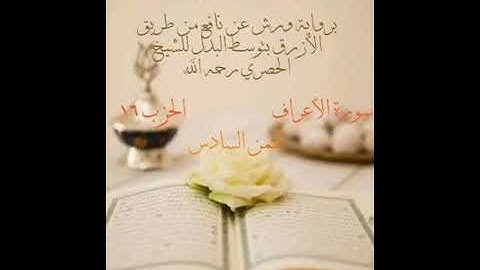 برواية ورش عن نافع من طريق
الأزرق بتوسط البدل للشيخ
الحصري رحمه الله
سورة الأعراف الحزب ١٦
ثمن السادس